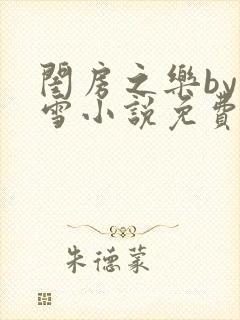 閨房之樂by
雪小說免費
朱德蒙